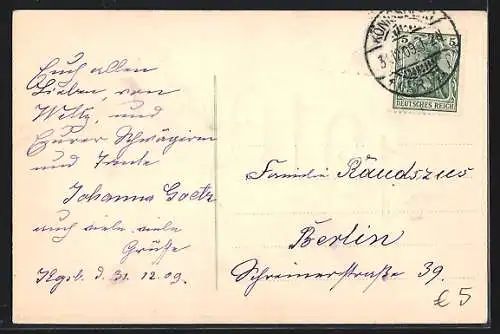 Euch allen
Lieben, von
und
Eurer Schwägerin
und Tante
Johanna Goetz
auch viele, viele
Grüße
Kgsb. d. 31. 12. 09.
KÖNIGSBERG
31.12.09.
5
DEUTSCHES REICH
Familie Raudszus
Berlin
Schreinerstraße 39.
£5